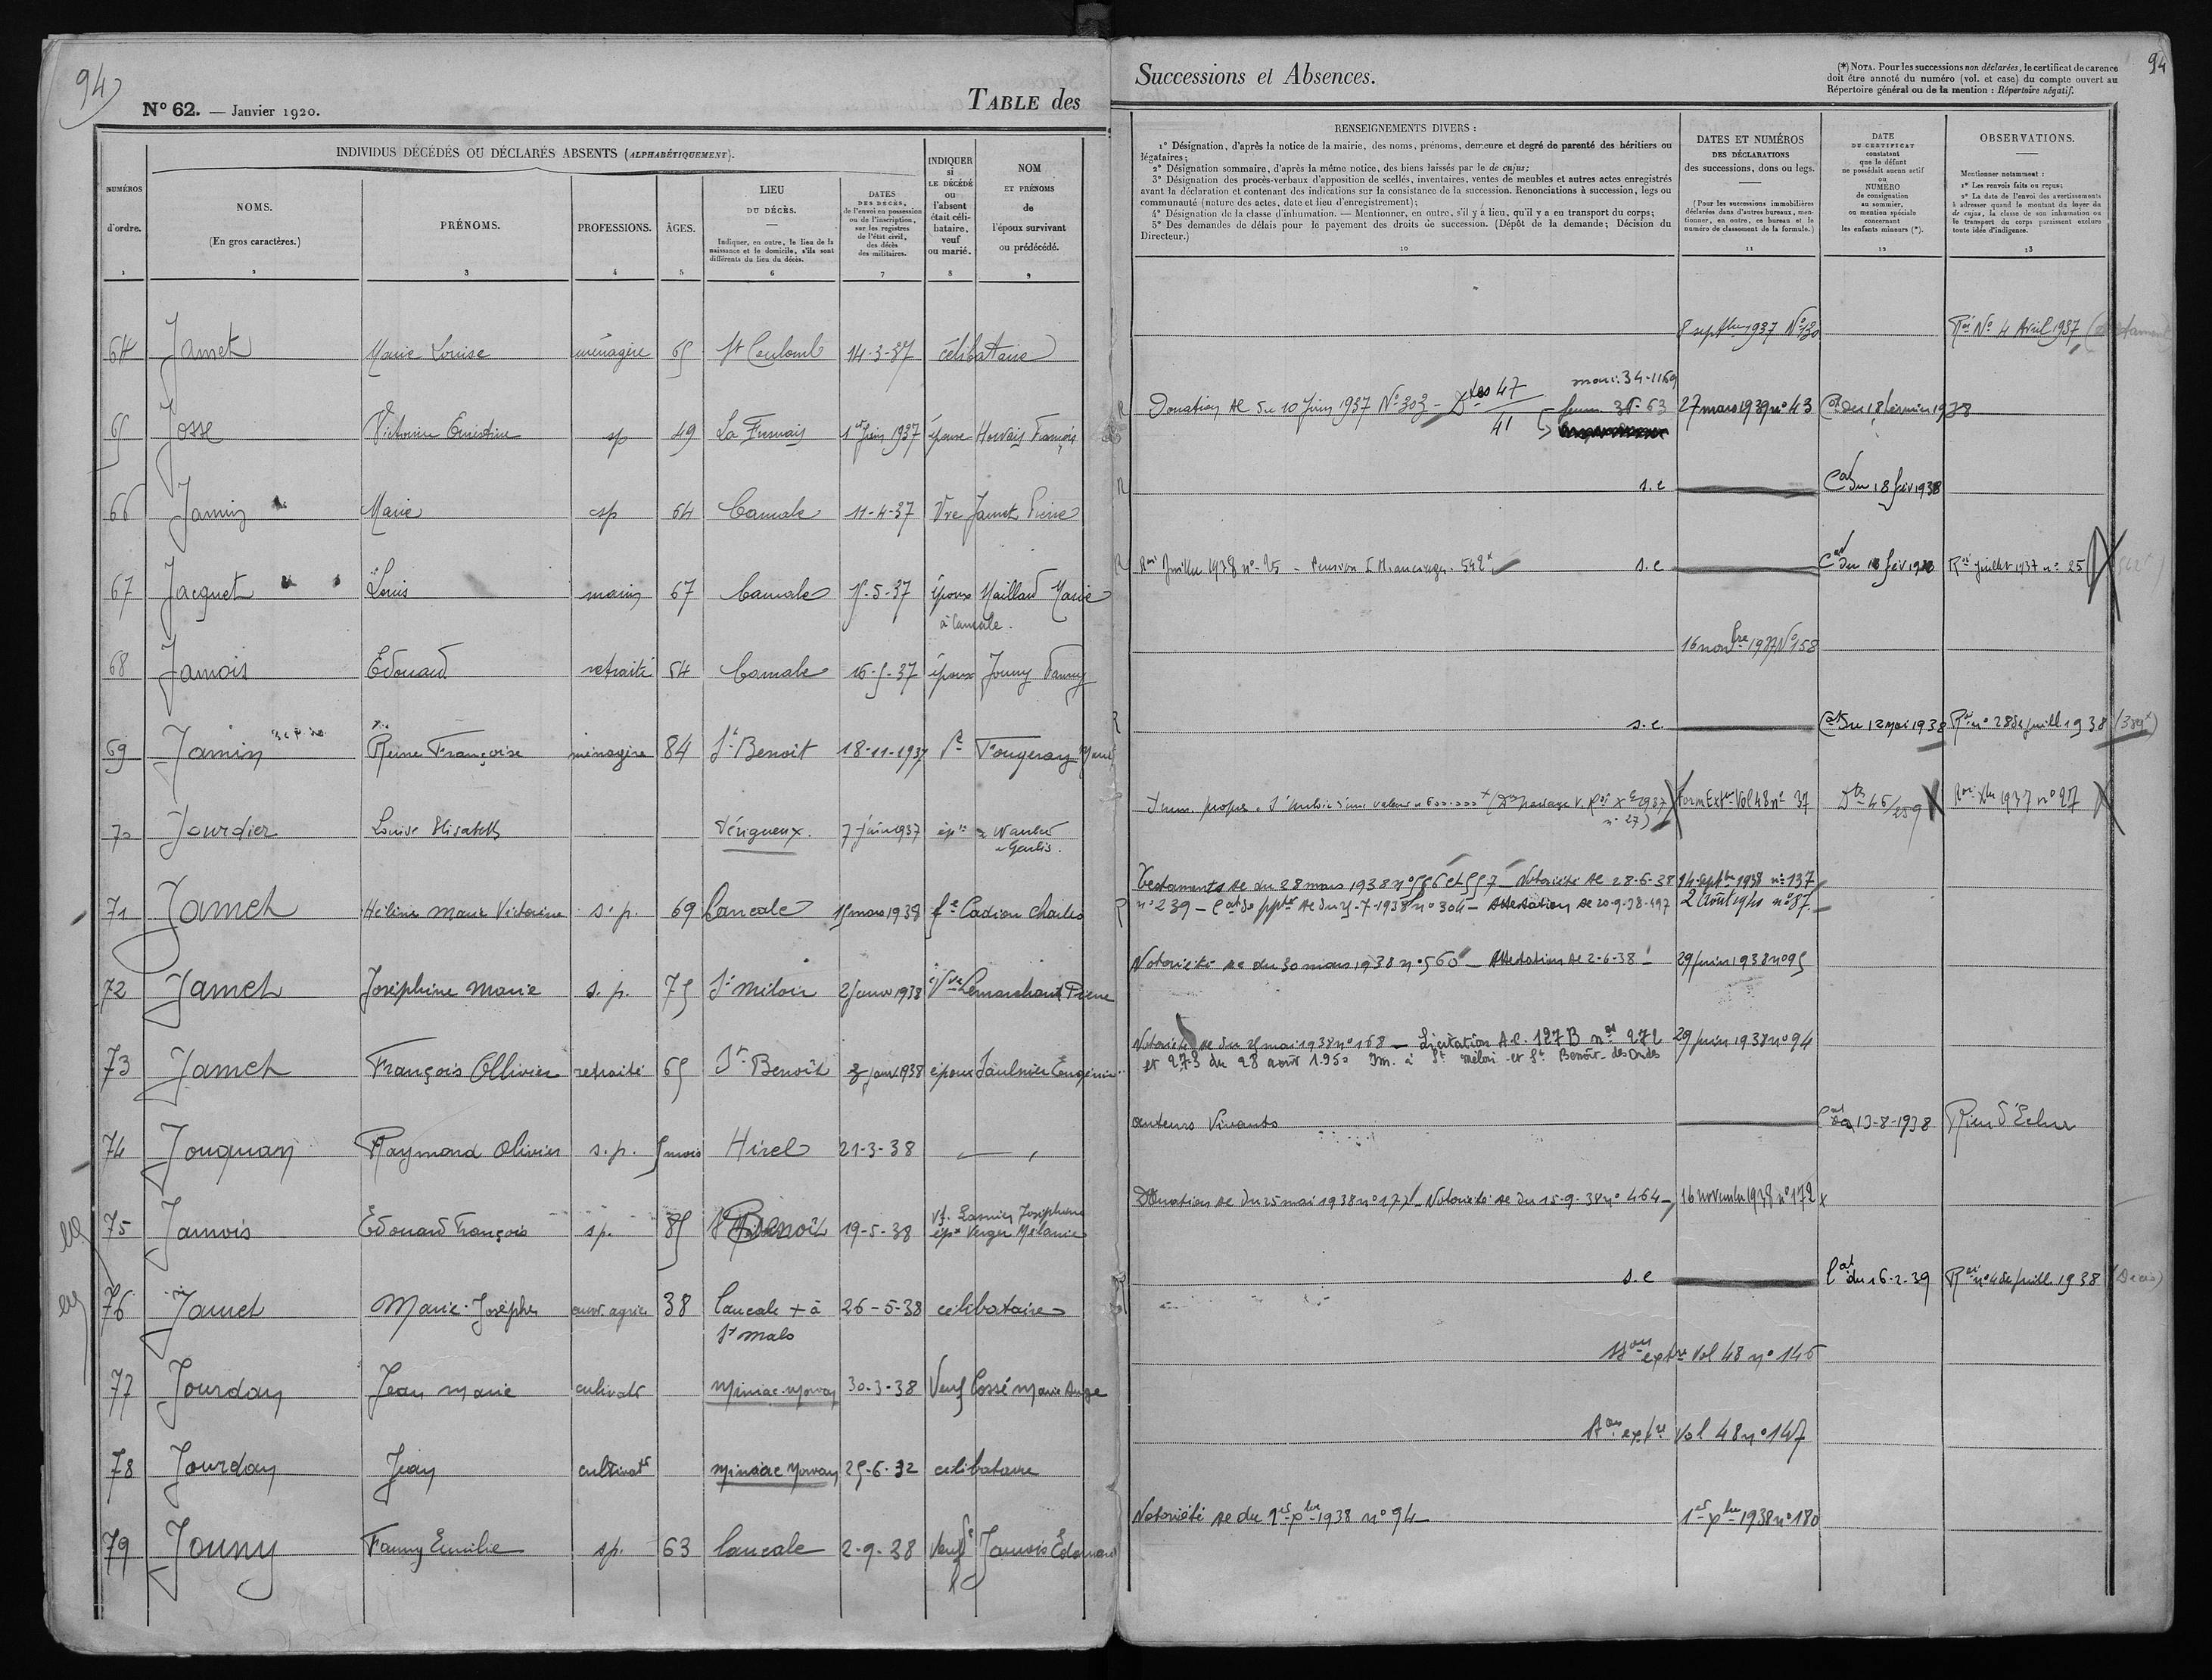 94
N° 62. — Janvier 1920.
TABLE des
Successions et Absences.
(*) NOTA. Pour les successions non déclarées, le certificat de carence
doit être annoté du numéro (vol. et case) du compte ouvert au
Répertoire général ou de la mention : Répertoire négatif.
94
NUMÉROS
d'ordre.
1
INDIVIDUS DÉCÉDÉS OU DÉCLARÉS ABSENTS (ALPHABÉTIQUEMENT).
NOMS.
(En gros caractères.)
2
PRÉNOMS.
3
PROFESSIONS.
4
ÂGES.
5
LIEU
DU DÉCÈS.
Indiquer, en outre, le lieu de la
naissance et le domicile, s'ils sont
différents du lieu du décès.
6
DATES
DES DÉCÈS,
de l'envoi en possession
ou de l'inscription,
sur les registres
de l'état civil,
des décès
des militaires.
7
INDIQUER
si
LE DÉCÉDÉ
ou
l'absent
était céli-
bataire,
veuf
ou marié.
8
NOM
ET PRÉNOMS
de
l'époux survivant
ou prédécédé.
9
RENSEIGNEMENTS DIVERS :
1° Désignation, d'après la notice de la mairie, des noms, prénoms, demeure et degré de parenté des héritiers ou
légataires;
2° Désignation sommaire, d'après la même notice, des biens laissés par le de cujus;
3° Désignation des procès-verbaux d'apposition de scellés, inventaires, ventes de meubles et autres actes enregistrés
avant la déclaration et contenant des indications sur la consistance de la succession. Renonciations à succession, legs ou
communauté (nature des actes, date et lieu d'enregistrement);
4° Désignation de la classe d'inhumation. — Mentionner, en outre, s'il y a lieu, qu'il y a eu transport du corps;
5° Des demandes de délais pour le payement des droits de succession. (Dépôt de la demande; Décision du
Directeur.)
10
DATES ET NUMÉROS
DES DÉCLARATIONS
des successions, dons ou legs.
(Pour les successions immobilières
déclarées dans d'autres bureaux, men-
tionner, en outre, ce bureau et le
numéro de classement de la formule.)
11
DATE
DU CERTIFICAT
constatant
que le défunt
ne possédait aucun actif
ou
NUMÉRO
de consignation
au sommier,
ou mention spéciale
concernant
les enfants mineurs (*).
12
OBSERVATIONS.
Mentionner notamment :
1° Les renvois faits ou reçus;
2° La date de l'envoi des avertissements
à adresser quand le montant du loyer du
de cujus, la classe de son inhumation ou
le transport du corps paraissent exclure
toute idée d'indigence.
13
64 Jamet Marie Louise ménagère 65 St Coulomb 14-3-37 célibataire
8 septbre 1937 N° 130 Roi N° 4 Avril 1937
65 Josse Victorine Ernestine sp 49 La Fresnais 1er juin 1937 épouse Horvais François
Donation Ac du 10 Juin 1937 N° 303 - 47/41 34-1169 36-63 27 mars 1939 n° 43 Cat du 18 février 1938
66 Jamin Marie sp 64 Cancale 11-4-37 Vve Jamet Pierre
s.c Cat du 18 fév 1938
67 Jacquet Louis marin 67 Cancale 5-5-37 époux Maillard Marie
à Cancale.
Roi Juillet 1938 n° 25 - Pension s.c Cat du 18 fév 1938 Roi juillet 1937 n° 25
68 Jamois Edouard retraité 64 Cancale 16-5-37 époux Jouny Fanny
16 novbre 1937 N° 158
69 Jamin Reine Françoise ménagère 84 St Benoit 18-11-1937 Ve Fougeray
s.c. Cat du 12 mai 1938 Roi n° 28 de juill 1938 (389f)
70 Jourdier Louise Elisabeth Périgueux. 7 juin 1937
Form Extre Vol 48 n° 37 46/259 Roi Xbre 1937 n° 27
71 Jamet Hélène Marie Victorine s.p. 69 Cancale 15 mars 1938 fe Cadiou Charles
Testaments Ac du 28 mars 1938 n° 556 et 557 — Notoriété Ac 28-6-38 14 septbre 1938 n° 137
n° 239 — Cat de pptre Ac du 5-7-1938 n° 304 — Attestation Ac 20-9-38-497 2 Août 1940 n° 87
72 Jamet Joséphine Marie s.p. 75 St Méloir 2 janv 1938 Vve Lemarchand Pierre
Notoriété Ac du 30 mars 1938 n° 560 — Attestation Ac 2-6-38 — 29 juin 1938 n° 95
73 Jamet François Ollivier retraité 65 St Benoit 3 janv. 1938 époux Saulnier Eugénie
Notoriété Ac du 25 mai 1938 n° 168 — Licitation A.C. 127 B nos 272 29 juin 1938 n° 94
et 273 du 28 août 1950 Im. à St Méloir et St Benoit-des Ondes
74 Jouquan Raymond Olivier s.p. 5 mois Hirel 21-3-38
auteurs Vivants 13-8-1938 Rien d'Echu
75 Jamois Edouard François sp. 85 St Benoit 19-5-38 Vf. Lasnier Joséphine
épx Verger Mélanie
Donation Ac du 25 mai 1938 n° 177 — Notoriété Ac du 15-9-38 n° 464 — 16 novembre 1938 n° 172
76 Jamet Marie-Josèphe ouvr. agric 38 Cancale + à 26-5-38 célibataire
St Malo
s.c Cat du 16-2-39 Roi n° 4 de juill. 1938 (Décès)
77 Jourdan Jean Marie cultivatr Miniac-Morvan 30-3-38 Veuf Cossé Marie Ange
extre Vol 48 n° 146
78 Jourdan Jean cultivatr Miniac Morvan 25-6-32 célibataire
extre Vol 48 n° 147
79 Jouny Fanny Emilie sp. 63 Cancale 2-9-38 Jamois Edouard
Notoriété Ac du 1er Xbre 1938 n° 94 — 1er Xbre 1938 n° 180